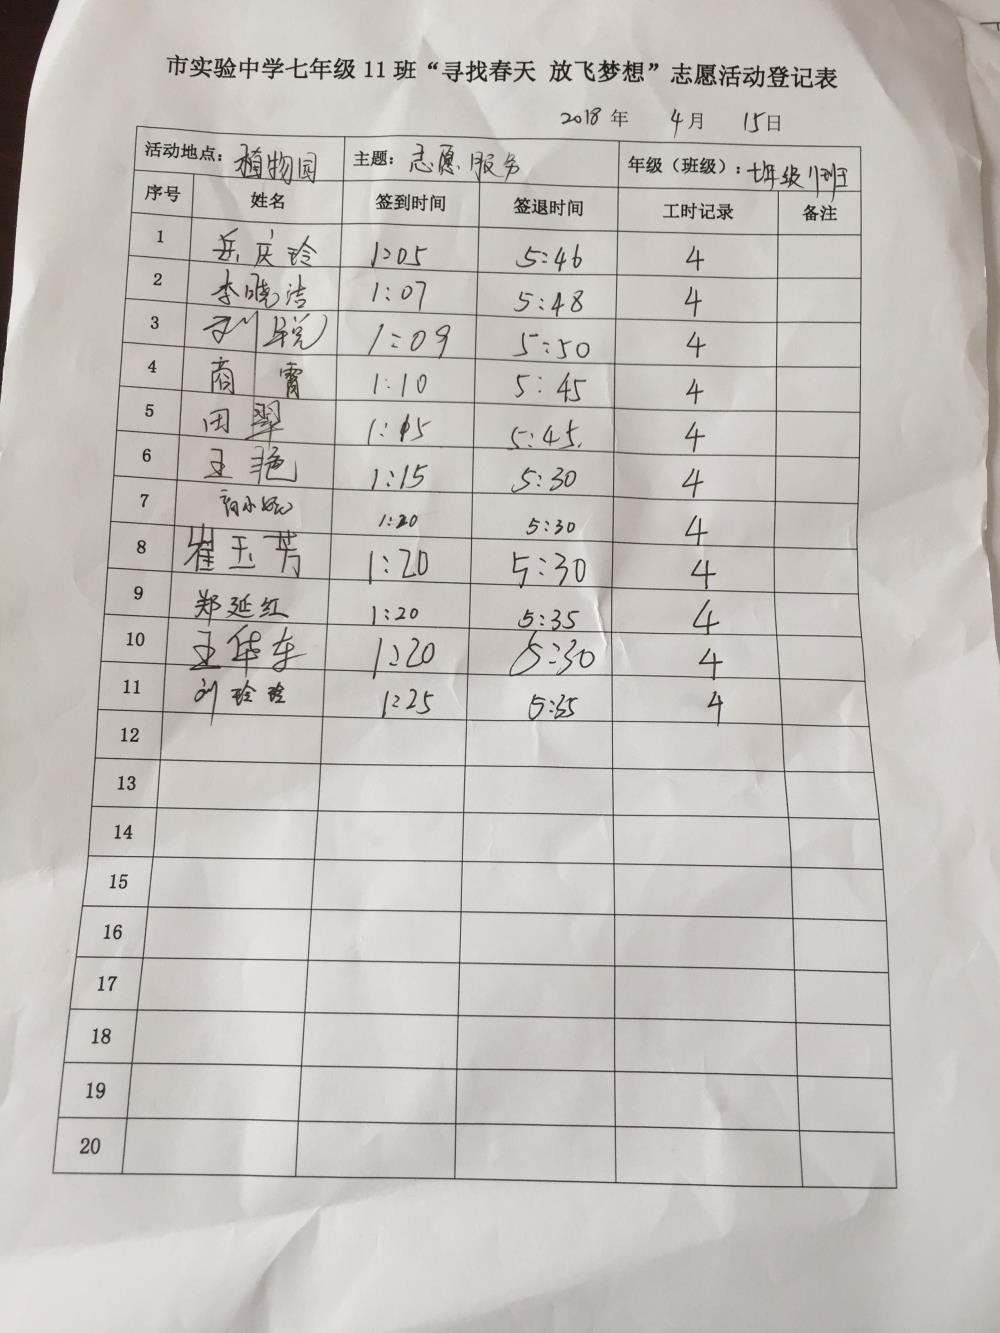 市实验中学七年级 11 班“寻找春天 放飞梦想”志愿活动登记表
2018 年 4 月 15 日
活动地点：植物园 主题：志愿服务 年级（班级）：七年级11班
序号 姓名 签到时间 签退时间 工时记录 备注
1 岳庆玲 1:05 5:46 4
2 李晓洁 1:07 5:48 4
3 刘 1:09 5:50 4
4 商霄 1:10 5:45 4
5 田翠 1:15 5:45 4
6 王艳 1:15 5:30 4
7 1:20 5:30 4
8 崔玉芳 1:20 5:30 4
9 郑延红 1:20 5:35 4
10 王华东 1:20 5:30 4
11 刘玲玲 1:25 5:35 4
12
13
14
15
16
17
18
19
20